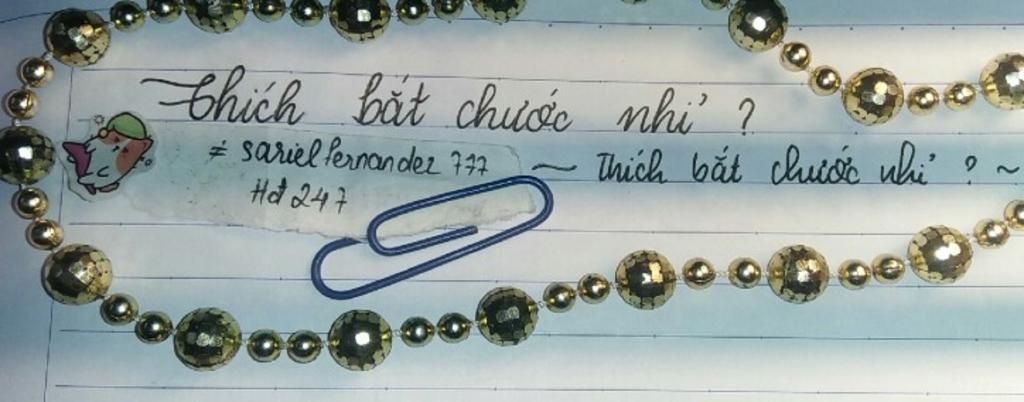 Thích bắt chước nhỉ ?
# sarielfernandez 777
Hd 247
~ Thích bắt chước nhỉ ? ~